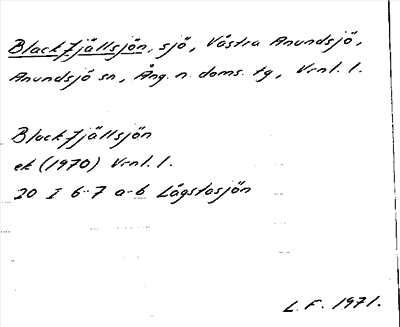 Blackfjällsjön, sjö, Västra Anundsjö,
Anundsjö sn, Ång. n. doms. tg, Vrnl. l.
Blackfjällsjön
ek (1970) Vrnl. l.
20 I 6-7 a-b Lågstasjön
L. F. 1971.